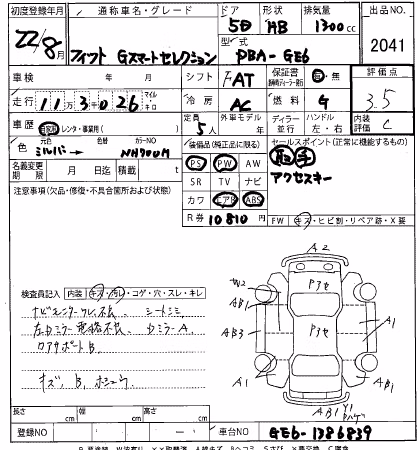 初度登録年月 通称車名・グレード ドア 形状 排気量 出品NO.
22/8月 フィット Gスマートセレクション 5D HB 1300cc 2041
型式 DBA-GE6
車検 年 月 シフト FAT 保証書 有・無 評価点
走行 11万3026 マイル キロ 冷房 AC 燃料 G 3.5
車歴 自家用 レンタ・事業用( ) 定員 5人 外車モデル ディーラー 並行 ハンドル 左・右 内装評価 C
色 元色 シルバー 色替 カラーNO NH700M 装備品(純正品に限る) セールスポイント(正常に機能するもの)
名義変更期限 月 日迄 積載 t PS PW AW 取 手
注意事項(欠品・修復・不具合箇所および状態) SR TV ナビ アクセスキー
カワ エアB ABS
R券 10810円 FW キズ・ヒビ割・リペア跡・X要
A2
検査員記入 内装 キズ・汚レ・コゲ・穴・スレ・キレ
W2 Pアセ
AB1
ナビモニター クレ不良 シートシミ
左カミラー 格納不良 カミラーA Pアセ
AB3 A1
ロアサポートB
A1 AB1
キズ、B、ホシュウ
AB1
長さ cm 幅 cm 高さ cm
登録NO 車台NO GE6-1386839